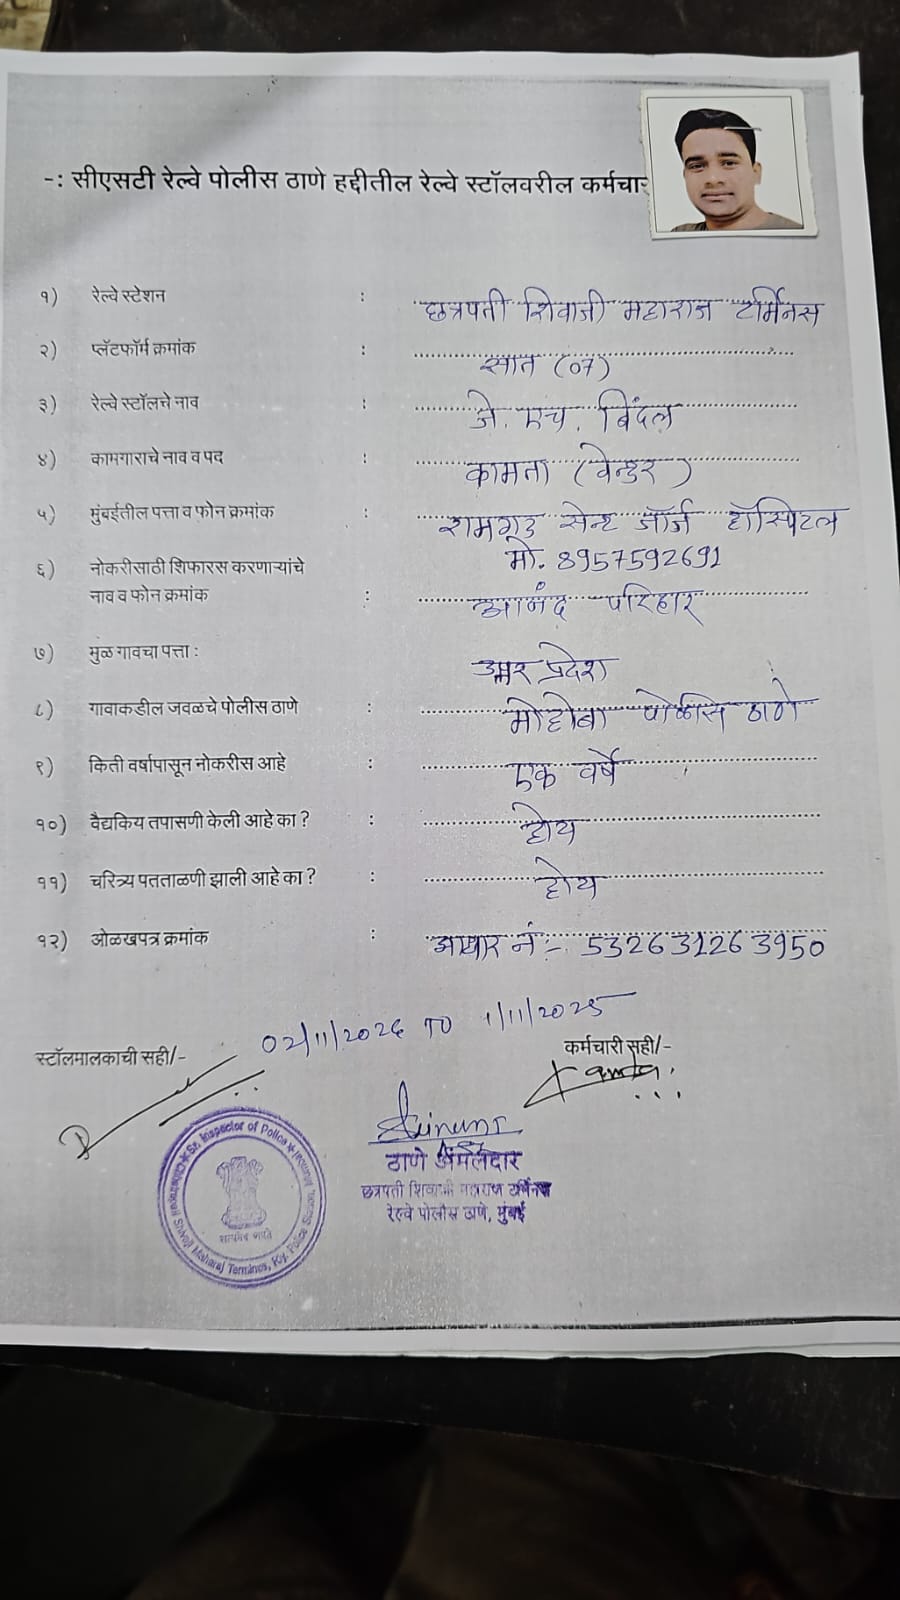 -: सीएसटी रेल्वे पोलीस ठाणे हद्दीतील रेल्वे स्टॉलवरील कर्मचा
१) रेल्वे स्टेशन : छत्रपती शिवाजी महाराज टर्मिनस
२) प्लॅटफॉर्म क्रमांक : सात (०7)
३) रेल्वे स्टॉलचे नाव : जे. एच. बिंदल
४) कामगाराचे नाव व पद : कामता (वेन्डर)
५) मुंबईतील पत्ता व फोन क्रमांक : सेन्ट जॉर्ज हॉस्पिटल
मो. 8957592691
६) नोकरीसाठी शिफारस करणाऱ्यांचे
नाव व फोन क्रमांक : आनंद परिहार
७) मुळ गावचा पत्ता : उत्तर प्रदेश
८) गावाकडील जवळचे पोलीस ठाणे : मोहोबा पोळीस ठाणे
९) किती वर्षापासून नोकरीस आहे : एक वर्षे
१०) वैद्यकिय तपासणी केली आहे का ? : होय
११) चरित्र्य पतताळणी झाली आहे का ? : होय
१२) ओळखपत्र क्रमांक : आधार नं:- 532631263950
02/11/202 TO 1/11/2025
स्टॉलमालकाची सही/-
कर्मचारी सही/-
Kamta
ठाणे अंमलदार
छत्रपती शिवाजी महाराज टर्मिनस
रेल्वे पोलीस ठाणे, मुंबई
Sr. Inspector of Police
Chhatrapati Shivaji Maharaj Terminus, Rly. Police Station, Mumbai
सत्यमेव जयते